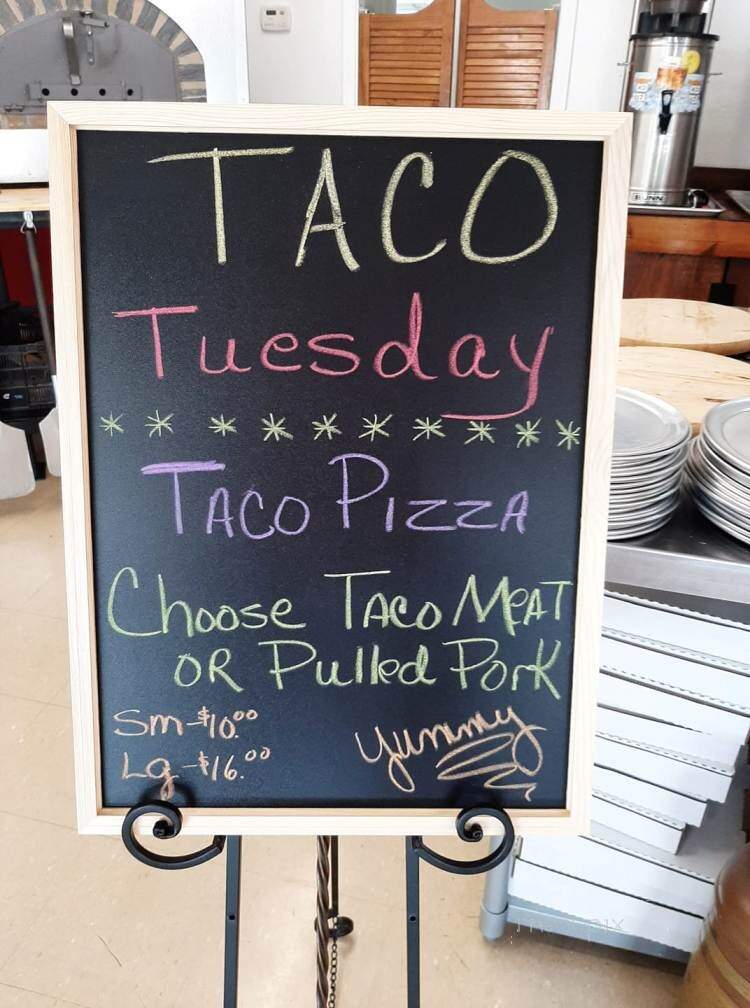 TACO
Tuesday
* * * * * * * * * *
TACO PIZZA
Choose TACO MEAT
OR Pulled Pork
Sm - $10.00
Lg - $16.00
Yummy
BUNN